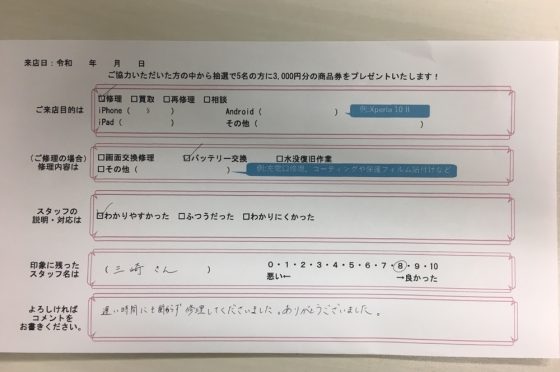 来店日：令和　年　月　日
ご協力いただいた方の中から抽選で5名の方に3,000円分の商品券をプレゼントいたします！
ご来店目的は
☑修理　□買取　□再修理　□相談
iPhone（　）　Android（　）　例:Xperia 10 II
iPad（　）　その他（　）
（ご修理の場合）
修理内容は
□画面交換修理　☑バッテリー交換　□水没復旧作業
□その他（　）　例:充電口修理、コーティングや保護フィルム貼付けなど
スタッフの
説明・対応は
☑わかりやすかった　□ふつうだった　□わかりにくかった
印象に残った
スタッフ名は
（三崎さん　）
0・1・2・3・4・5・6・7・8・9・10
悪い←　→良かった
よろしければ
コメントを
お書きください。
遅い時間にも関わらず修理してくださいました。ありがとうございました。